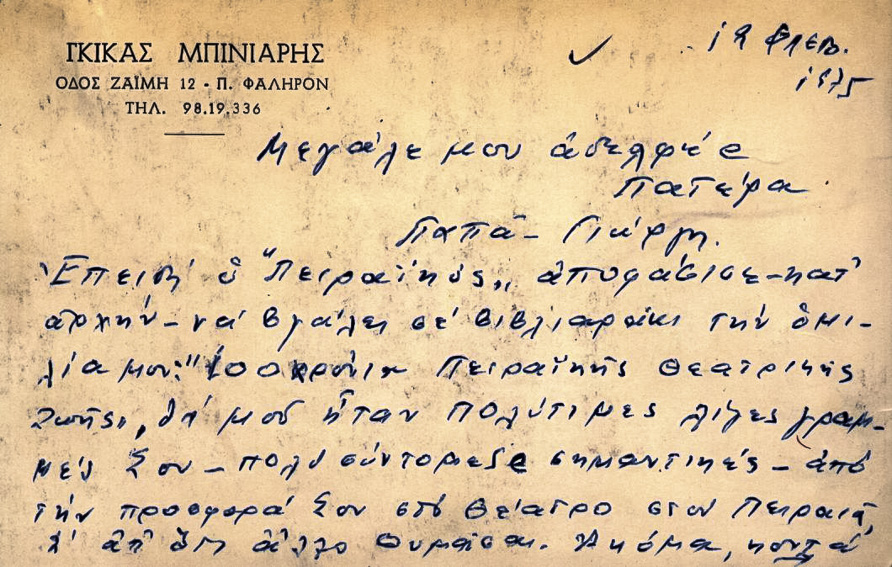 ΓΚΙΚΑΣ ΜΠΙΝΙΑΡΗΣ
ΟΔΟΣ ΖΑΪΜΗ 12 - Π. ΦΑΛΗΡΟΝ
ΤΗΛ. 98.19.336
19 Φλεβ.
1975
Μεγάλε μου ἀδελφέ
Πατέρα
Παπᾶ - Γιώργη.
Ἐπειδή ὁ "Πειραϊκός,, ἀποφάσισε - κατ'
ἀρχήν - νά βγάλει σέ βιβλιαράκι τήν ὁμι-
λία μου: "100 χρόνια Πειραϊκῆς Θεατρικῆς
Ζωῆς,, θά μοῦ ἦταν πολύτιμες λίγες γραμ-
μές Σου - πολύ σύντομες σημαντικές - ἀπό
τήν προσφορά Σου στό Θέατρο στόν Πειραιᾶ,
κ' ἀπ' ὅτι ἄλλο θυμᾶσαι. Ἀκόμα, κοντά